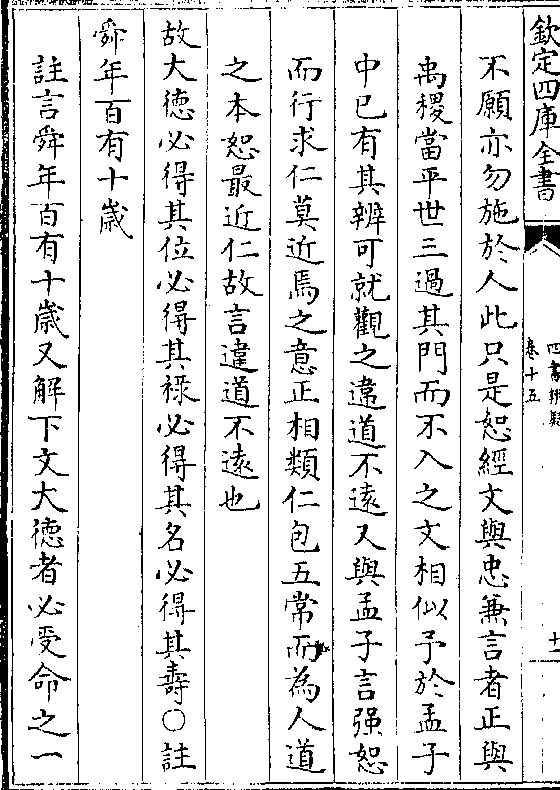 欽定四庫全書
四書辨疑
卷十五
十一
不願亦勿施於人此只是恕經文與忠兼言者正與
禹稷當平世三過其門而不入之文相似予於孟子
中已有其辨可就觀之違道不遠又與孟子言强恕
而行求仁莫近焉之意正相類仁包五常而為人道
之本恕最近仁故言違道不遠也
故大德必得其位必得其祿必得其名必得其壽○註
舜年百有十歲
註言舜年百有十歲又解下文大德者必受命之一